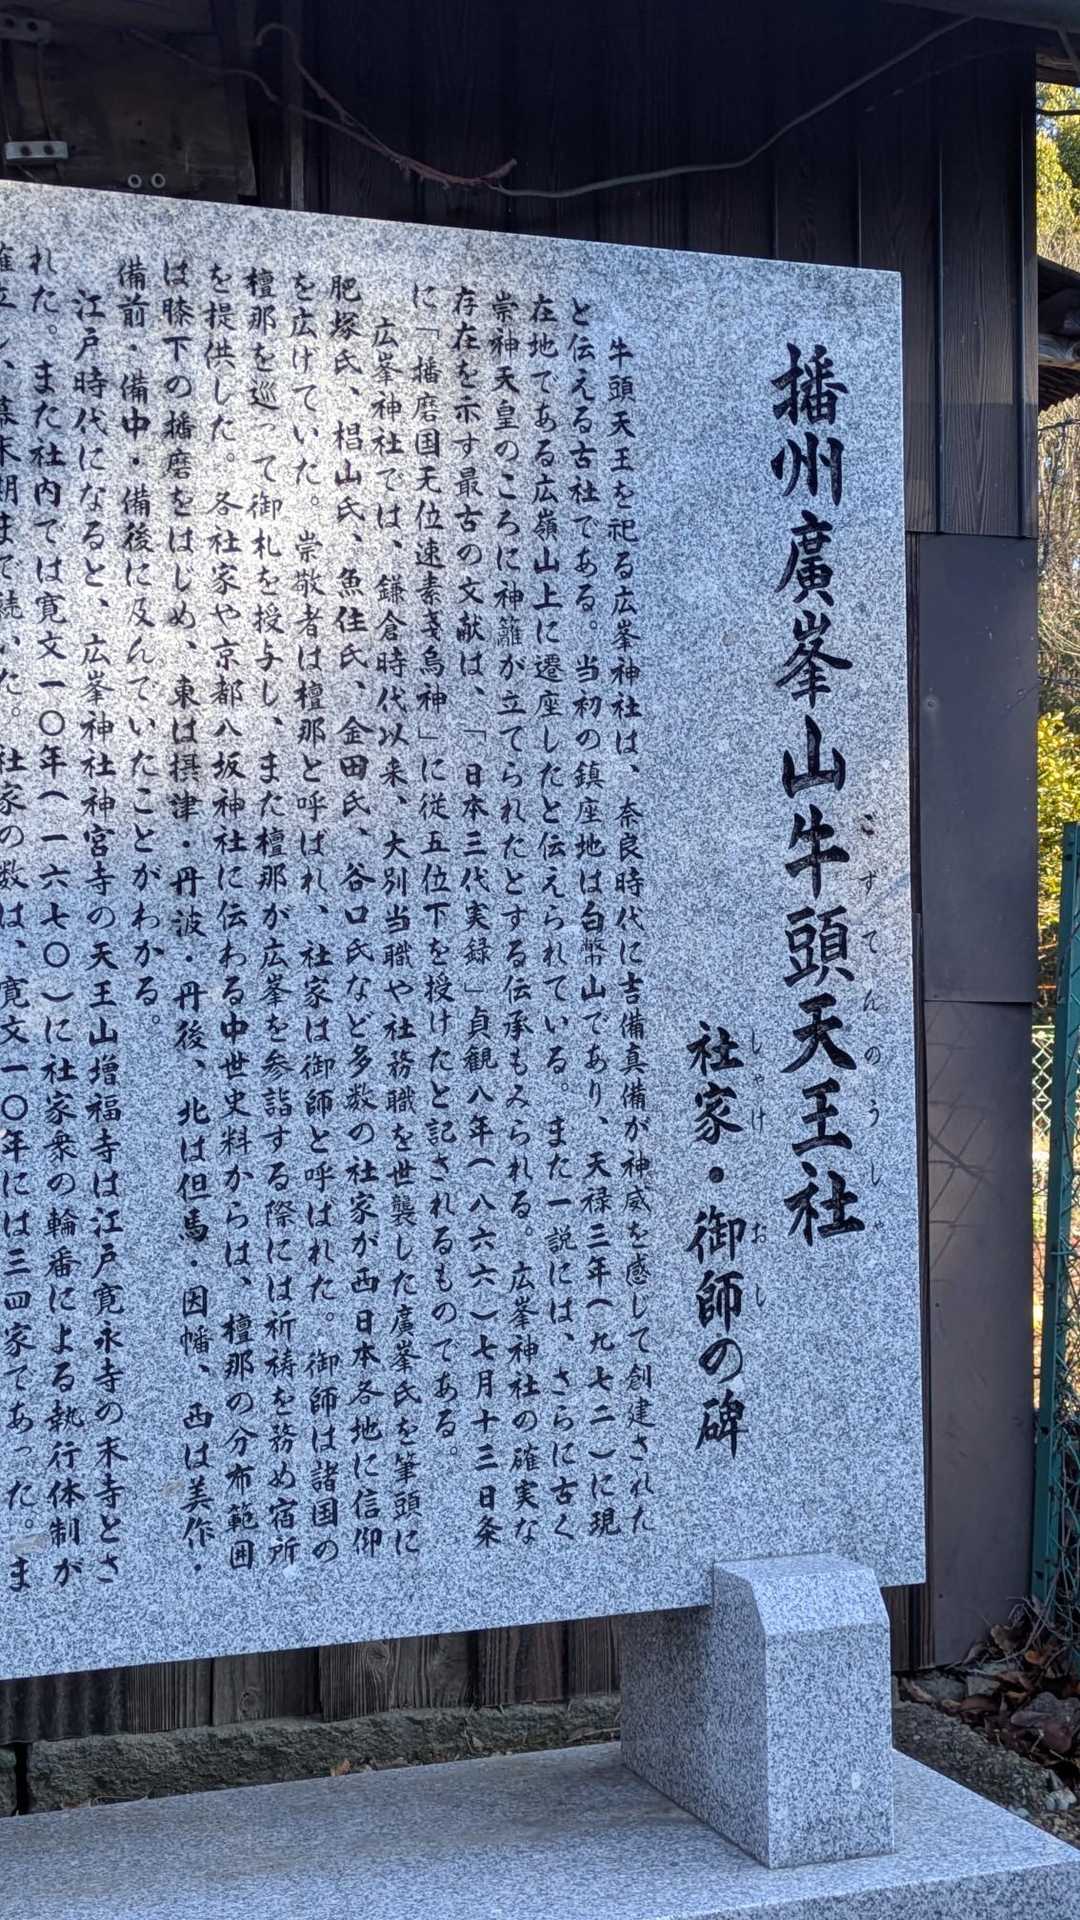 播州廣峯山牛頭天王社
ごずてんのうしゃ
社家・御師の碑
しゃけ おし
牛頭天王を祀る広峯神社は、奈良時代に吉備真備が神威を感じて創建された
と伝える古社である。当初の鎮座地は白幣山であり、天禄三年(九七二)に現
在地である広嶺山上に遷座したと伝えられている。また一説には、さらに古く
崇神天皇のころに神籬が立てられたとする伝承もみられる。広峯神社の確実な
存在を示す最古の文献は、「日本三代実録」貞観八年(八六六)七月十三日条
に「播磨国无位速素戔烏神」に従五位下を授けたと記されるものである。
広峯神社では、鎌倉時代以来、大別当職や社務職を世襲した廣峯氏を筆頭に
肥塚氏、椙山氏、魚住氏、金田氏、谷口氏など多数の社家が西日本各地に信仰
を広げていた。崇敬者は檀那と呼ばれ、社家は御師と呼ばれた。御師は諸国の
檀那を巡って御札を授与し、また檀那が広峯を参詣する際には祈祷を務め宿所
を提供した。各社家や京都八坂神社に伝わる中世史料からは、檀那の分布範囲
は膝下の播磨をはじめ、東は摂津・丹波・丹後、北は但馬・因幡、西は美作・
備前・備中・備後に及んでいたことがわかる。
江戸時代になると、広峯神社神宮寺の天王山増福寺は江戸寛永寺の末寺とさ
れた。また社内では寛文一〇年(一六七〇)に社家衆の輪番による執行体制が
確立し、幕末期まで続いた。社家の数は、寛文一〇年には三四家であった。ま